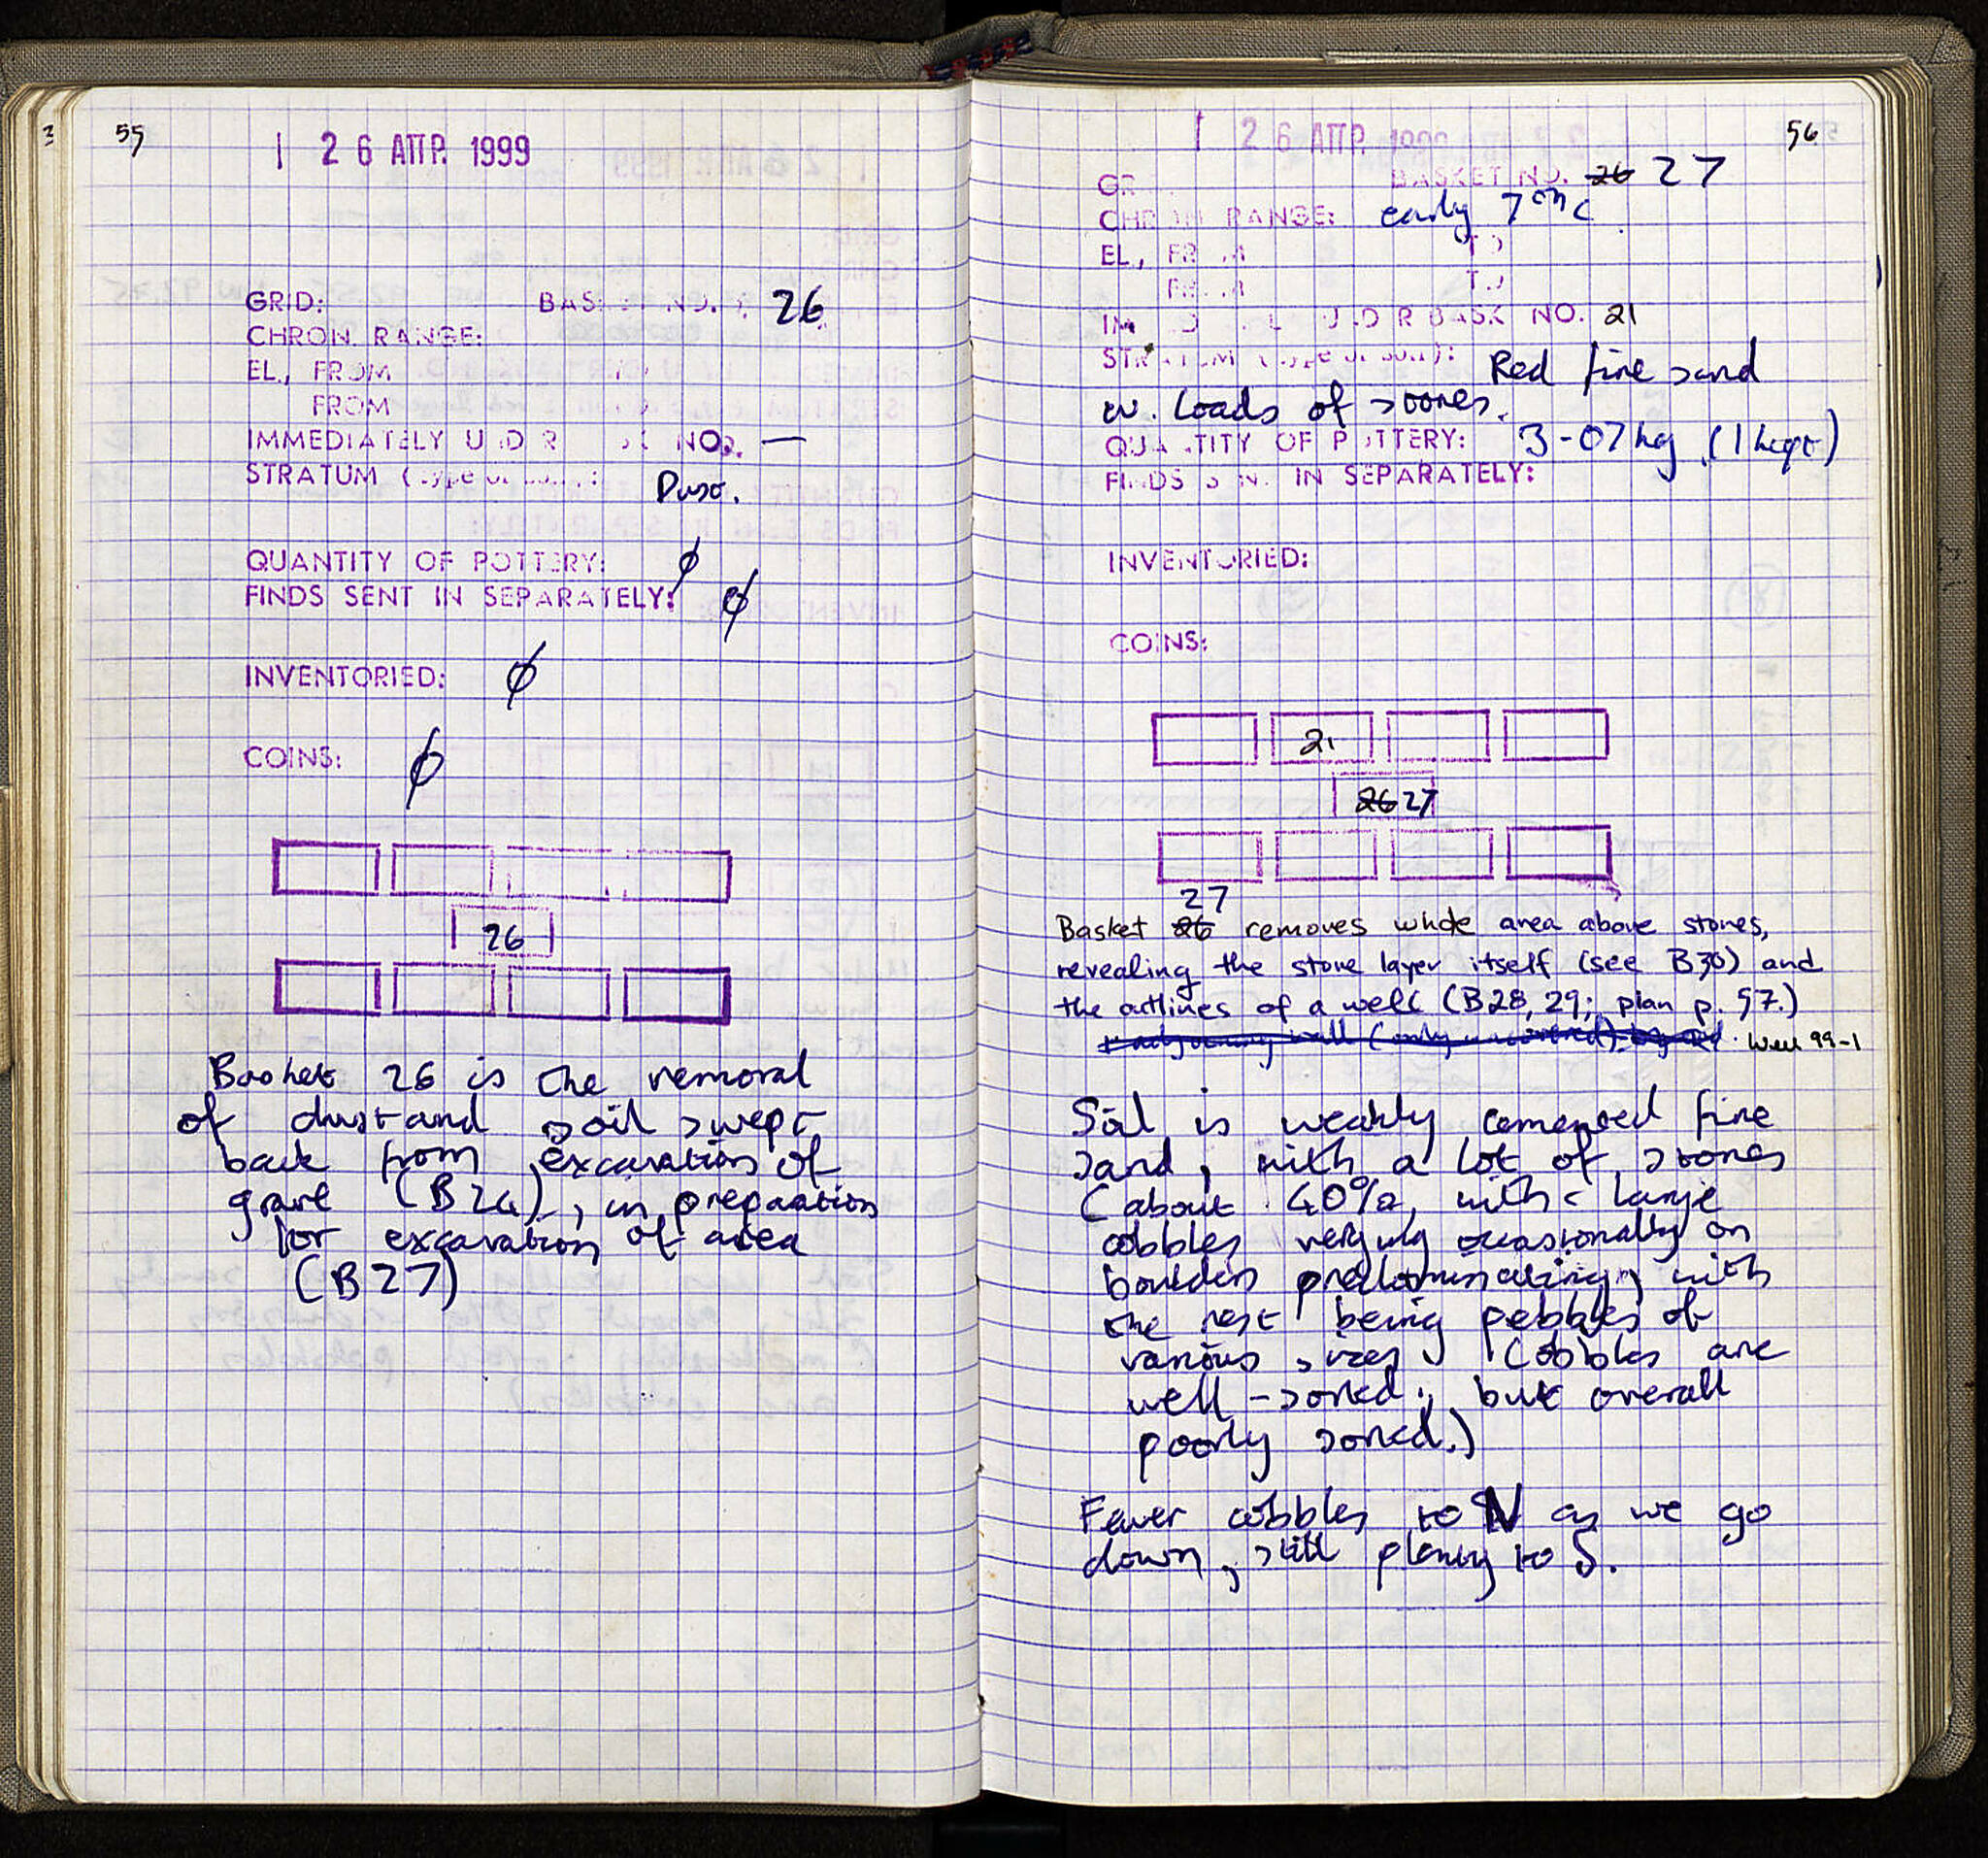 55
26 ΑΠΡ. 1999
GRID: BASKET NO. 26
CHRON. RANGE:
EL., FROM
FROM
IMMEDIATELY UNDER NO. —
STRATUM (type of soil): Dust.
QUANTITY OF POTTERY: ∅
FINDS SENT IN SEPARATELY: ∅
INVENTORIED: ∅
COINS: ∅
26
Basket 26 is the removal
of dust and soil swept
back from excavation of
grave (B24), in preparation
for excavation of area
(B27)
56
26 ΑΠΡ. 1999
BASKET NO. 26 27
CHRON RANGE: early 7th c
EL., FROM TO
FROM TO
IMMED UNDER BASK NO. 21
STRATUM (type of soil): Red fine sand
w. loads of stones.
QUANTITY OF POTTERY: 3-07kg (1 kept)
FINDS SENT IN SEPARATELY:
INVENTORIED:
COINS:
21
26 27
27
Basket 26 removes whole area above stones,
revealing the stone layer itself (see B30) and
the outlines of a well (B28, 29; plan p. 57.)
Well 99-1
Soil is weakly cemented fine
sand, with a lot of stones
(about 40%, with large
cobbles very occasionally on
boulders predominating, with
the rest being pebbles of
various sizes. Cobbles are
well-sorted; but overall
poorly sorted.)
Fewer cobbles to N as we go
down, still plenty to S.